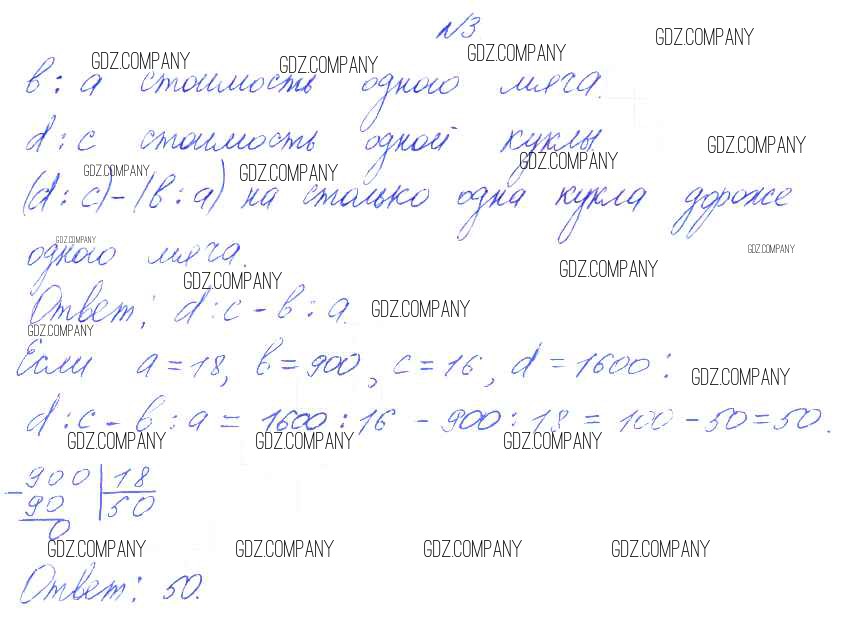 №3
GDZ.COMPANY GDZ.COMPANY GDZ.COMPANY GDZ.COMPANY
в : а стоимость одного мяча.
d : c стоимость одной куклы
GDZ.COMPANY GDZ.COMPANY GDZ.COMPANY GDZ.COMPANY
(d : c) - (в : а) на столько одна кукла дороже
GDZ.COMPANY GDZ.COMPANY
одного мяча.
GDZ.COMPANY GDZ.COMPANY
Ответ: d : c - в : а.
GDZ.COMPANY GDZ.COMPANY
Если а = 18, в = 900, с = 16, d = 1600 :
GDZ.COMPANY
d : c - в : а = 1600 : 16 - 900 : 18 = 100 - 50 = 50.
GDZ.COMPANY GDZ.COMPANY GDZ.COMPANY
- 900 | 18
90 | 50
0
GDZ.COMPANY GDZ.COMPANY GDZ.COMPANY GDZ.COMPANY
Ответ: 50.